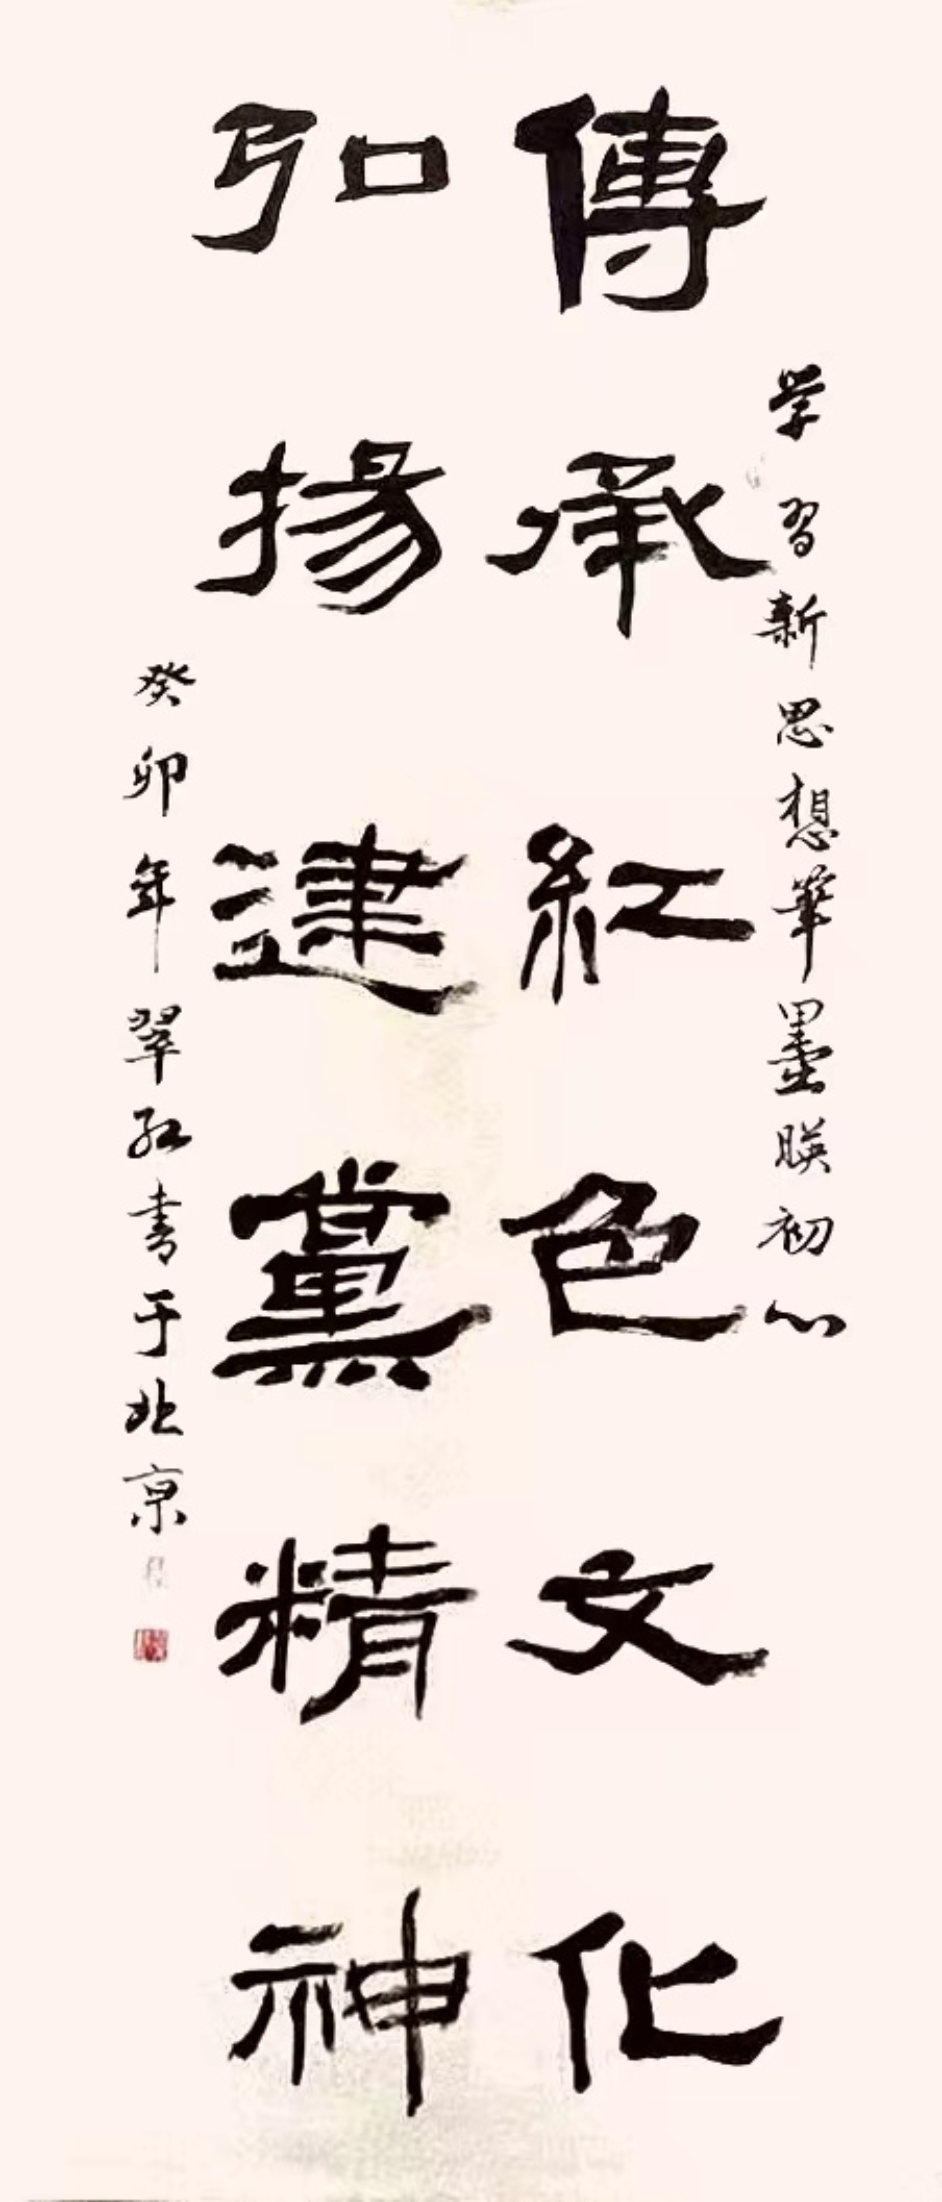 学習新思想筆墨暎初心
傳承紅色文化
弘揚建黨精神
癸卯年翠红書于北京